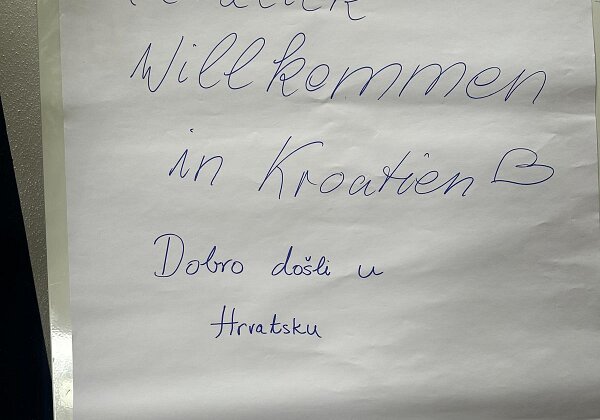 Willkommen
in Kroatien
Dobro došli u
Hrvatsku